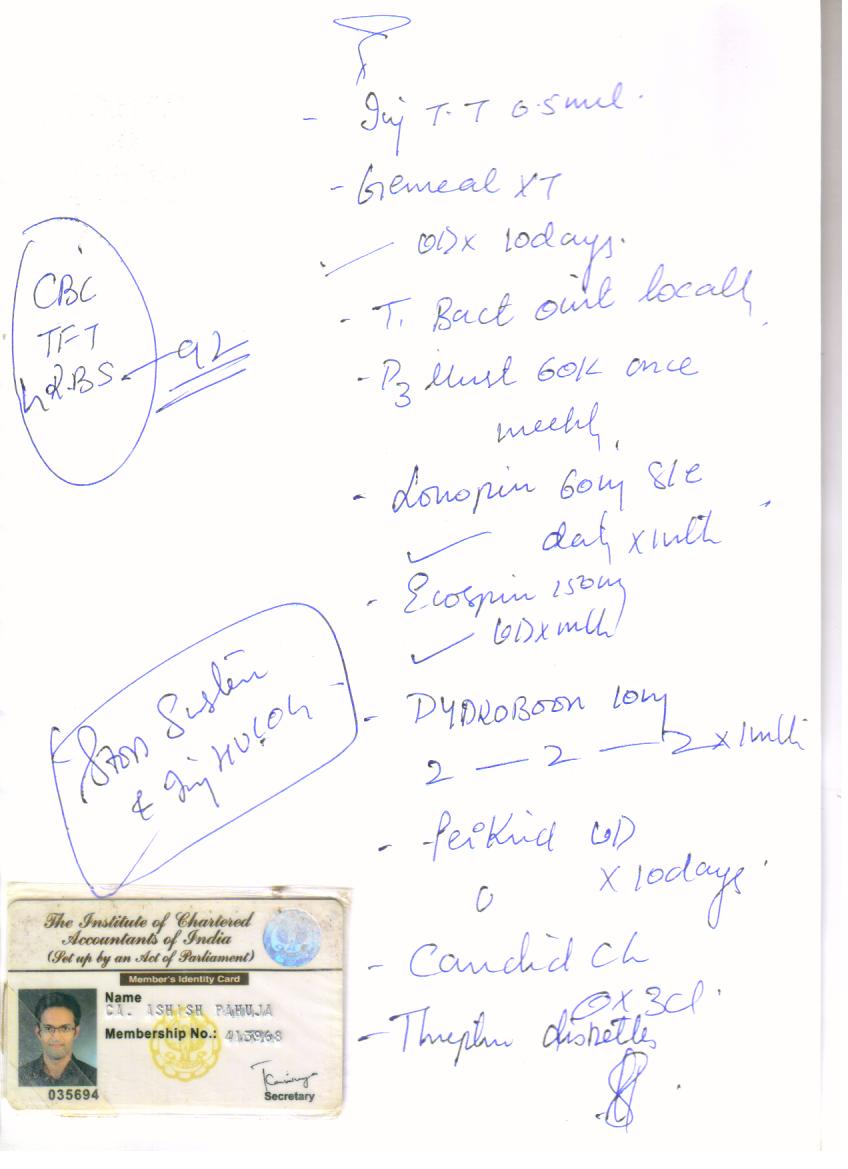 - Inj T.T 0.5ml.
- Gemcal XT
OD x 10days.
- T. Bact oint locally
- D3 Must 60K once
weekly
- Lonopin 60mg S/c
daily x 1mth
- Ecospin 150mg
OD x mth
- DYDROBOON 10mg
2 — 2 — 2 x 1mth
OD
x 10days
- Candid CL
0 x 3d.
- Threptin diskettes
CBC
TFT
RBS - 92
Stop Susten
& Inj HUCOG
The Institute of Chartered
Accountants of India
(Set up by an Act of Parliament)
Member's Identity Card
Name
CA. ASHISH PAHUJA
Membership No.:
035694
Secretary